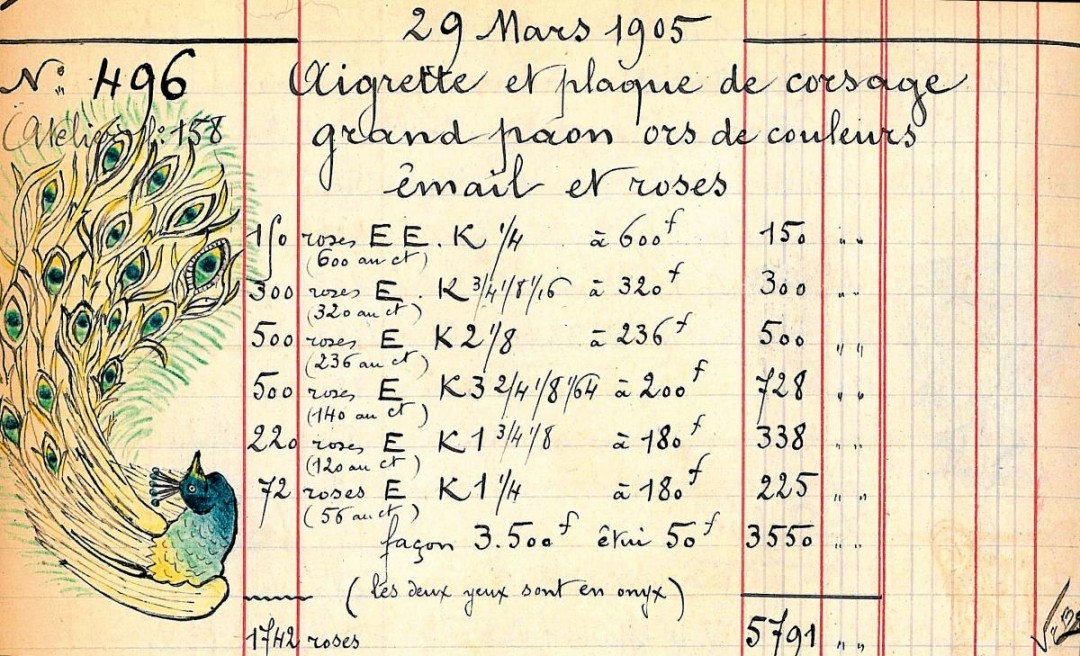 29 Mars 1905
N: 496 Aigrette et plaque de corsage
(Atelier f: 158 grand paon ors de couleurs
émail et roses
150 roses E E. K 1/4 à 600 f 150 " "
(600 au ct)
300 roses E. K 3/4 1/8 1/16 à 320 f 300 " "
(320 au ct)
500 roses E K 2 1/8 à 236 f 500 " "
(236 au ct)
500 roses E K 3 2/4 1/8 1/64 à 200 f 728 " "
(140 au ct)
220 roses E K 1 3/4 1/8 à 180 f 338 " "
(120 au ct)
72 roses E K 1 1/4 à 180 f 225 " "
(56 au ct)
façon 3.500 f étui 50 f 3550 " "
(les deux yeux sont en onyx)
1742 roses 5791 " "